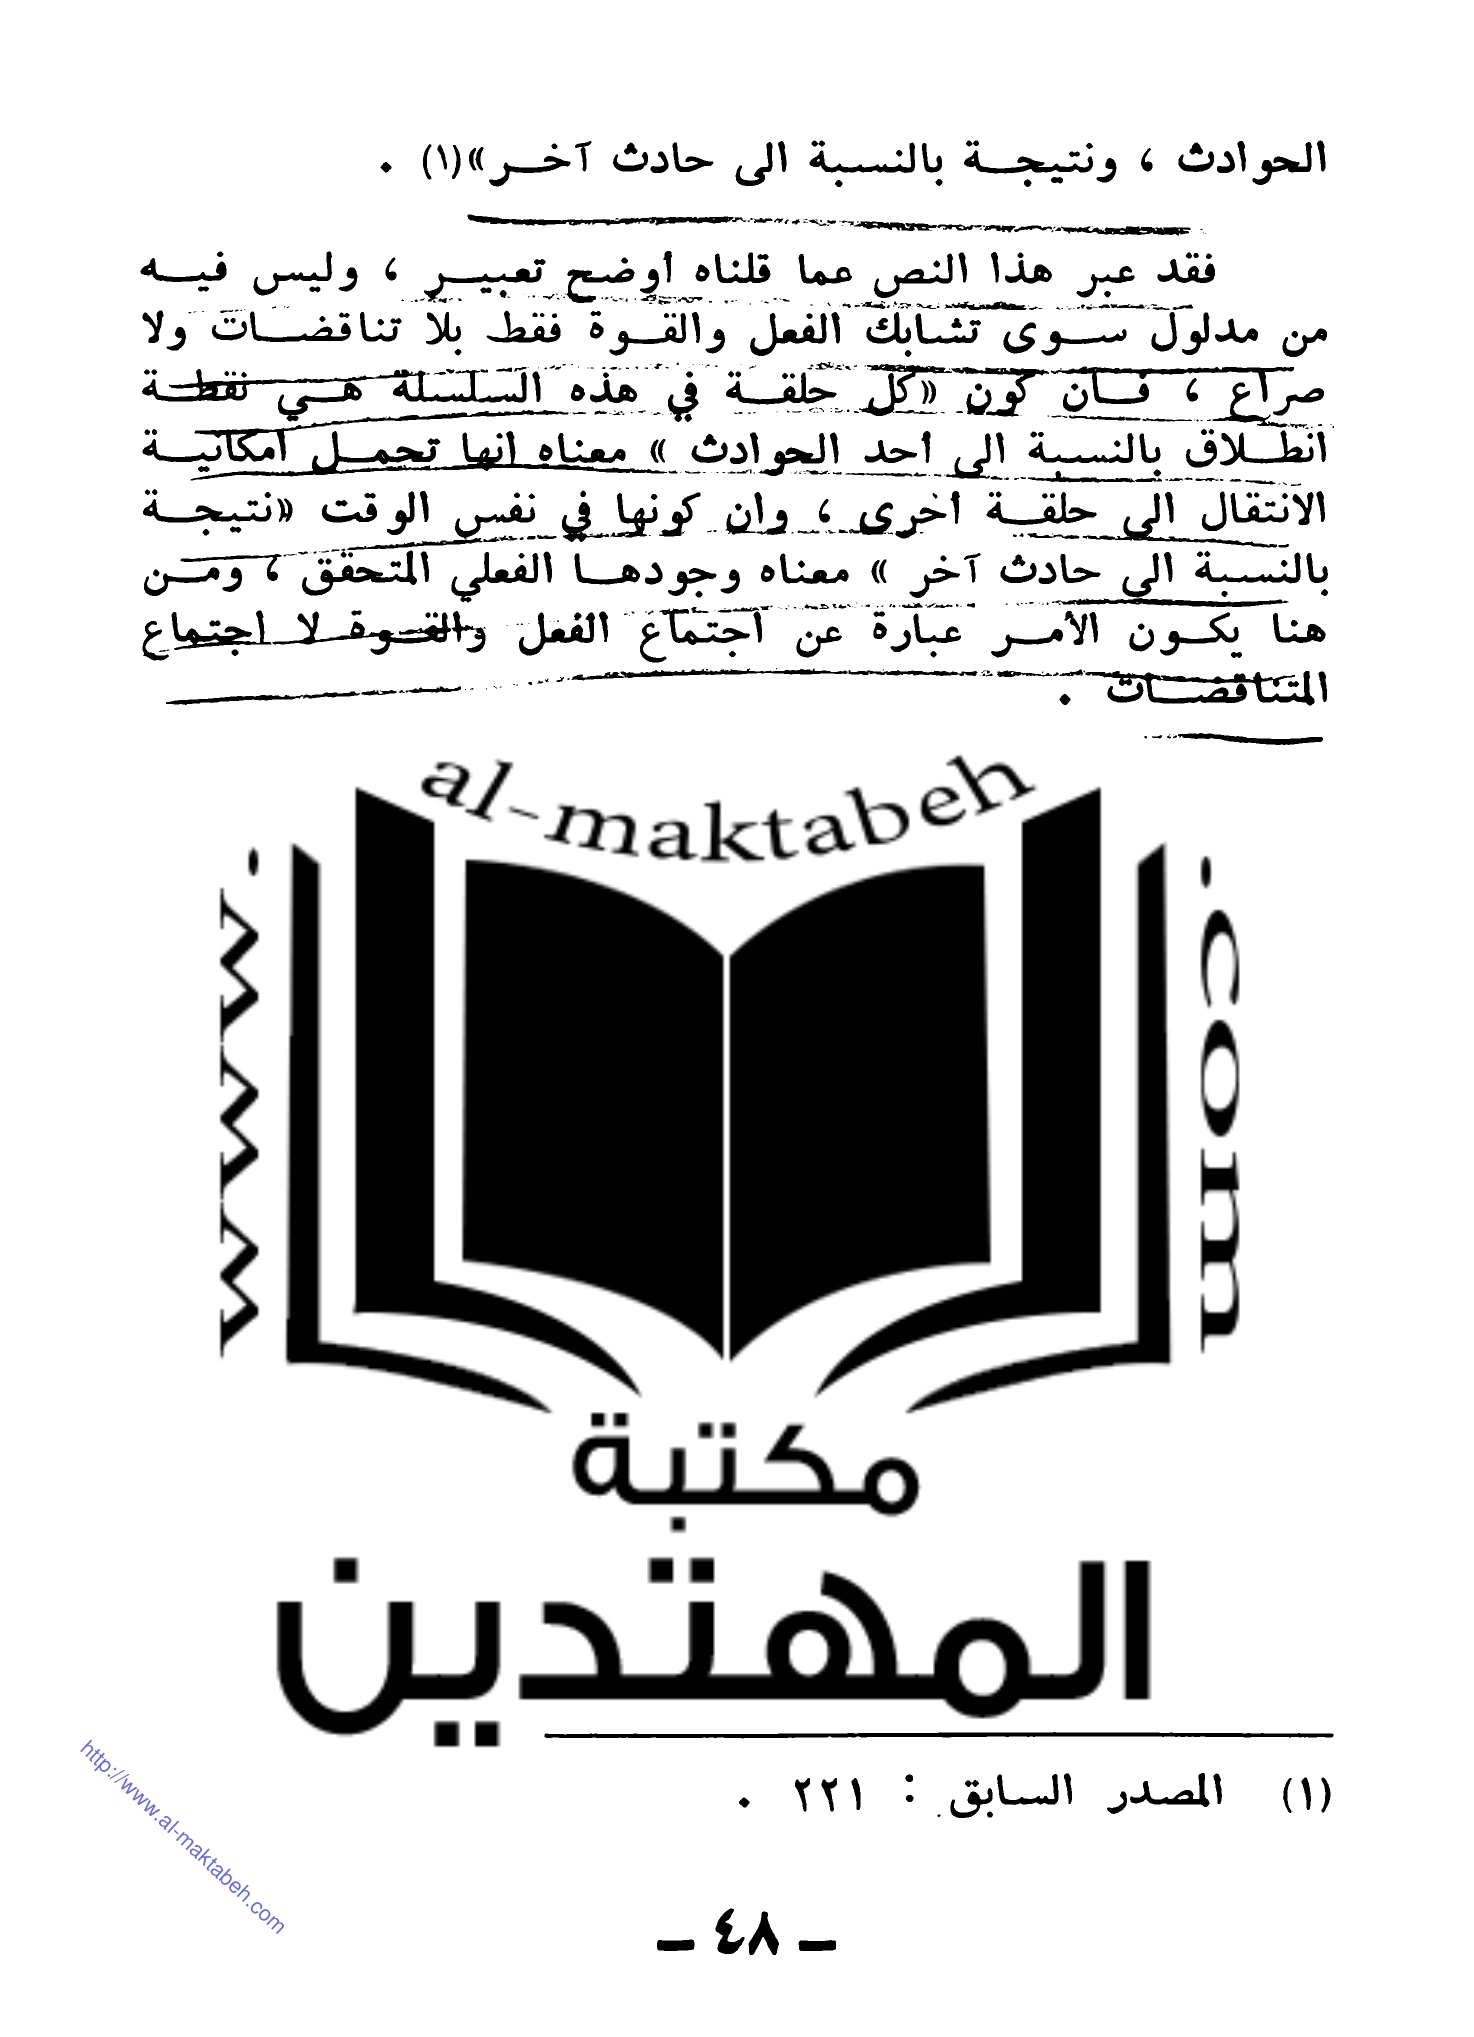 الحوادث ، ونتيجة بالنسبة الى حادث آخر»(١) .
فقد عبر هذا النص عما قلناه أوضح تعبير ، وليس فيه
من مدلول سوى تشابك الفعل والقوة فقط بلا تناقضات ولا
صراع ، فان كون «كل حلقة في هذه السلسلة هي نقطة
انطلاق بالنسبة الى أحد الحوادث » معناه انها تحمل امكانية
الانتقال الى حلقة أخرى ، وان كونها في نفس الوقت «نتيجة
بالنسبة الى حادث آخر » معناه وجودها الفعلي المتحقق ، ومن
هنا يكون الأمر عبارة عن اجتماع الفعل والقوة لا اجتماع
المتناقضات .
www.al-maktabeh.com
مكتبة
المهتدين
(١) المصدر السابق : ٢٢١ .
http://www.al-maktabeh.com
ـ ٤٨ ـ